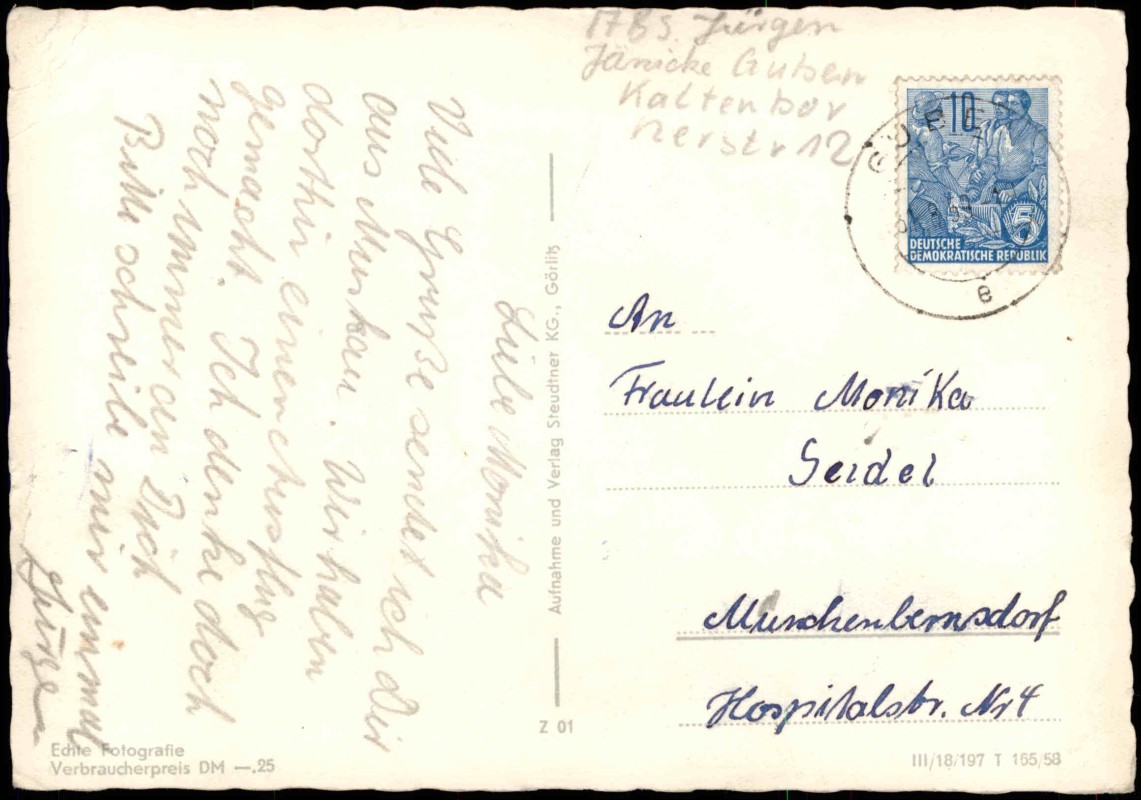 1785. Jürgen
Jänicke Guben
Kaltenbor
nerstr 12
10
5
DEUTSCHE
DEMOKRATISCHE REPUBLIK
GUBEN
e
An
Fraulein Monika
Seidel
Munchenbernsdorf
Hospitalstr. Nr 4
Liebe Monika
Viele Grüße sendet ich dir
aus Muskau. Wir haben
dorthin einen Ausflug
gemacht. Ich denke doch
noch immer an Dich
Bitte schreibe mir einmal
Jürgen
Aufnahme und Verlag Steudtner KG., Görlitz
Z 01
Echte Fotografie
Verbraucherpreis DM —.25
III/18/197 T 165/58